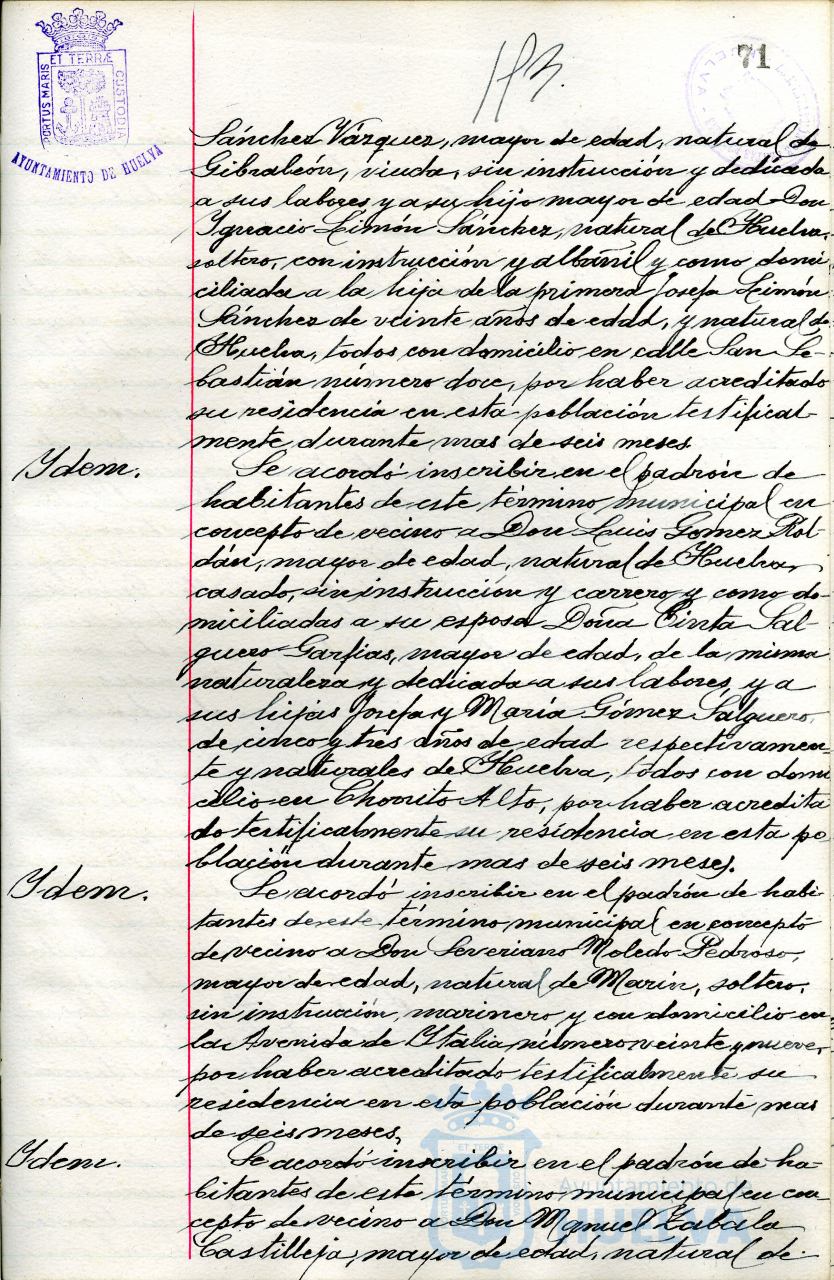 PORTUS MARIS ET TERRÆ CUSTODIA
AYUNTAMIENTO DE HUELVA
71
Sánchez Vázquez, mayor de edad, natural de
Gibraleón, viuda, sin instrucción y dedicada
a sus labores y a su hijo mayor de edad Don
Ygnacio Limón Sánchez, natural de Huelva,
soltero, con instrucción y albañil y como domi-
ciliada a la hija de la primera Josefa Limón
Sánchez de veinte años de edad, y natural de
Huelva, todos con domicilio en calle San Se-
bastián número doce, por haber acreditado
su residencia en esta población testifical-
mente durante mas de seis meses.
Ydem.
Se acordó inscribir en el padrón de
habitantes de este término municipal en
concepto de vecino a Don Luis Gomez Rol-
dán, mayor de edad, natural de Huelva,
casado, sin instrucción y carrero y como do-
miciliadas a su esposa Doña Cinta Sal-
guero Garfias, mayor de edad, de la misma
naturaleza y dedicada a sus labores, y a
sus hijas Josefa y María Gómez Salguero,
de cinco y tres años de edad respectivamen-
te y naturales de Huelva, todos con domi
cilio en Chorrito Alto, por haber acredita
do testificalmente su residencia en esta po
blación durante mas de seis meses.
Ydem.
Se acordó inscribir en el padrón de habi-
tantes de este término municipal en concepto
de vecino a Don Severiano Moledo Pedroso,
mayor de edad, natural de Marín, soltero,
sin instrucción, marinero y con domicilio en
la Avenida de Italia, número veinte y nueve,
por haber acreditado testificalmente su
residencia en esta población durante mas
de seis meses.
Ydem.
Se acordó inscribir en el padrón de ha-
bitantes de este término municipal en con-
cepto de vecino a Don Manuel Zabala
Castilleja, mayor de edad, natural de
Ayuntamiento de
HUELVA